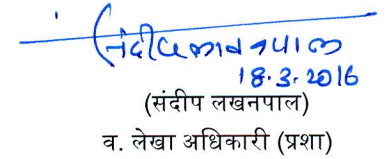 संदीप लखनपाल
18.3.2016
(संदीप लखनपाल)
व. लेखा अधिकारी (प्रशा)